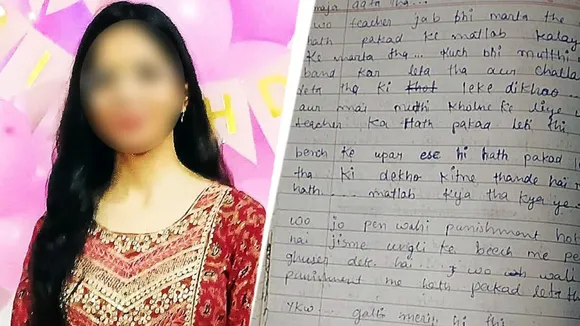 H D
maja aata tha...
wo teacher jab bhi marta the
hath pakad ke matlab kalay
ke marta tha... kuch bhi mutthi
band kar leta tha aur challa
deta tha ki khol leke dikhao
aur mai muthi kholne ke liye
teacher ka Hath pakad leti thi
bench ke upar ese hi hath pakad l
tha ki dekho kitne thande hai
hath ..... matlab kya tha kya ye
wo jo pen wahi punishment hot
hai jisme ungli ke beech me pe
ghuser dete hai ... wo wali
punishment me hath pakad leta th
YKW .... galti meri hi thi